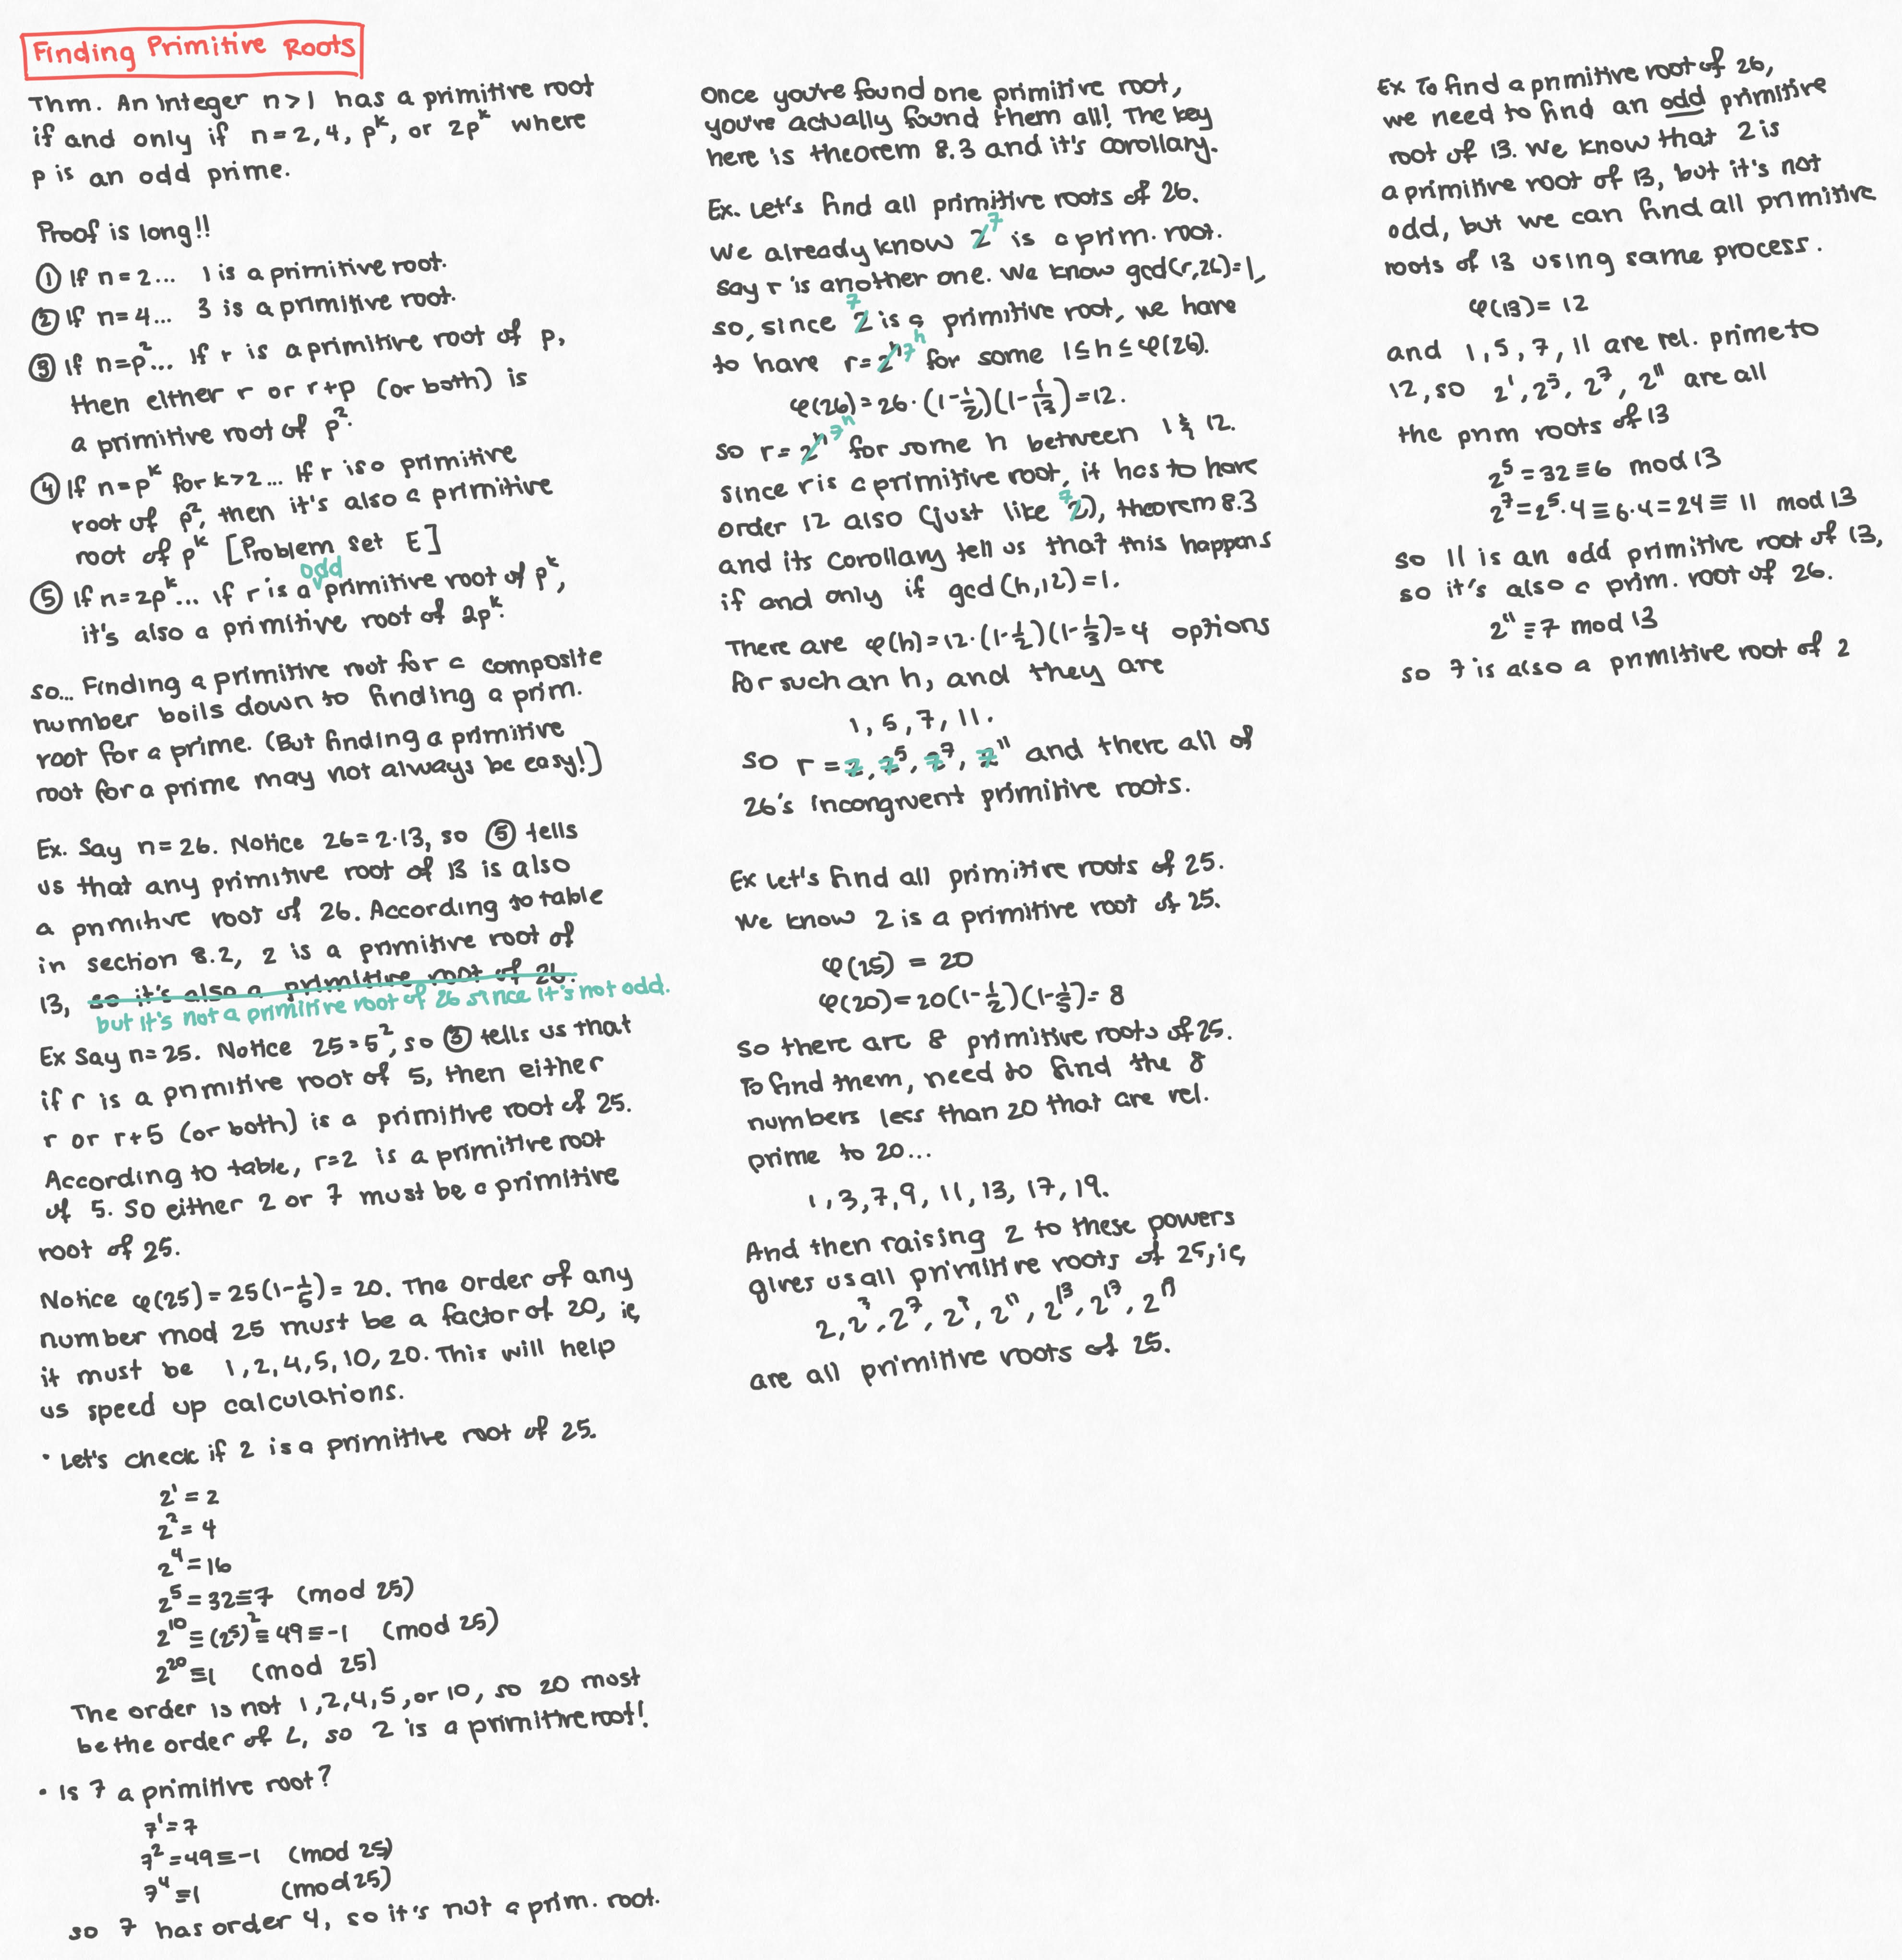 Finding Primitive Roots
Thm. An integer n>1 has a primitive root
if and only if n=2,4, p^k, or 2p^k where
p is an odd prime.
Proof is long!!
① If n=2... 1 is a primitive root.
② If n=4... 3 is a primitive root.
③ If n=p^2... If r is a primitive root of p,
then either r or r+p (or both) is
a primitive root of p^2.
④ If n=p^k for k>2... If r is a primitive
root of p^2, then it's also a primitive
root of p^k [Problem Set E]
odd
⑤ If n=2p^k... if r is a primitive root of p^k,
it's also a primitive root of 2p^k.
so... Finding a primitive root for a composite
number boils down to finding a prim.
root for a prime. (But finding a primitive
root for a prime may not always be easy!)
Ex. Say n=26. Notice 26=2·13, so ⑤ tells
us that any primitive root of 13 is also
a primitive root of 26. According to table
in section 8.2, 2 is a primitive root of
13, so it's also a primitive root of 26.
but it's not a primitive root of 26 since it's not odd.
Ex Say n=25. Notice 25=5^2, so ③ tells us that
if r is a primitive root of 5, then either
r or r+5 (or both) is a primitive root of 25.
According to table, r=2 is a primitive root
of 5. So either 2 or 7 must be a primitive
root of 25.
Notice φ(25)=25(1-1/5)=20. The order of any
number mod 25 must be a factor of 20, ie,
it must be 1,2,4,5,10,20. This will help
us speed up calculations.
· Let's check if 2 is a primitive root of 25.
2^1=2
2^2=4
2^4=16
2^5=32≡7 (mod 25)
2^10≡(2^5)^2≡49≡-1 (mod 25)
2^20≡1 (mod 25)
The order is not 1,2,4,5,or 10, so 20 most
be the order of 2, so 2 is a primitive root!
· Is 7 a primitive root?
7^1=7
7^2=49≡-1 (mod 25)
7^4≡1 (mod 25)
so 7 has order 4, so it's not a prim. root.
Once you've found one primitive root,
you've actually found them all! The key
here is theorem 8.3 and it's corollary.
Ex. Let's find all primitive roots of 26.
7
We already know 2 is a prim. root.
say r is another one. We know gcd(r,26)=1,
7
so, since 2 is a primitive root, we have
to have r=2^h 7^h for some 1≤h≤φ(26).
φ(26)=26·(1-1/2)(1-1/13)=12.
so r=2^h 7^h for some h between 1 & 12.
since r is a primitive root, it has to have
7
order 12 also (just like 2), theorem 8.3
and its corollary tell us that this happens
if and only if gcd(h,12)=1.
There are φ(h)=12·(1-1/2)(1-1/3)=4 options
for such an h, and they are
1,5,7,11.
so r=7,7^5,7^7,7^11 and there all of
26's incongruent primitive roots.
Ex Let's find all primitive roots of 25.
We know 2 is a primitive root of 25.
φ(25)=20
φ(20)=20(1-1/2)(1-1/5)=8
So there are 8 primitive roots of 25.
To find them, need to find the 8
numbers less than 20 that are rel.
prime to 20...
1,3,7,9,11,13,17,19.
And then raising 2 to these powers
gives us all primitive roots of 25, ie,
2,2^3,2^7,2^9,2^11,2^13,2^17,2^19
are all primitive roots of 25.
Ex To find a primitive root of 26,
we need to find an odd primitive
root of 13. We know that 2 is
a primitive root of 13, but it's not
odd, but we can find all primitive
roots of 13 using same process.
φ(13)=12
and 1,5,7,11 are rel. prime to
12, so 2^1,2^5,2^7,2^11 are all
the prim roots of 13
2^5=32≡6 mod 13
2^7=2^5·4≡6·4=24≡11 mod 13
so 11 is an odd primitive root of 13,
so it's also a prim. root of 26.
2^11≡7 mod 13
so 7 is also a primitive root of 2